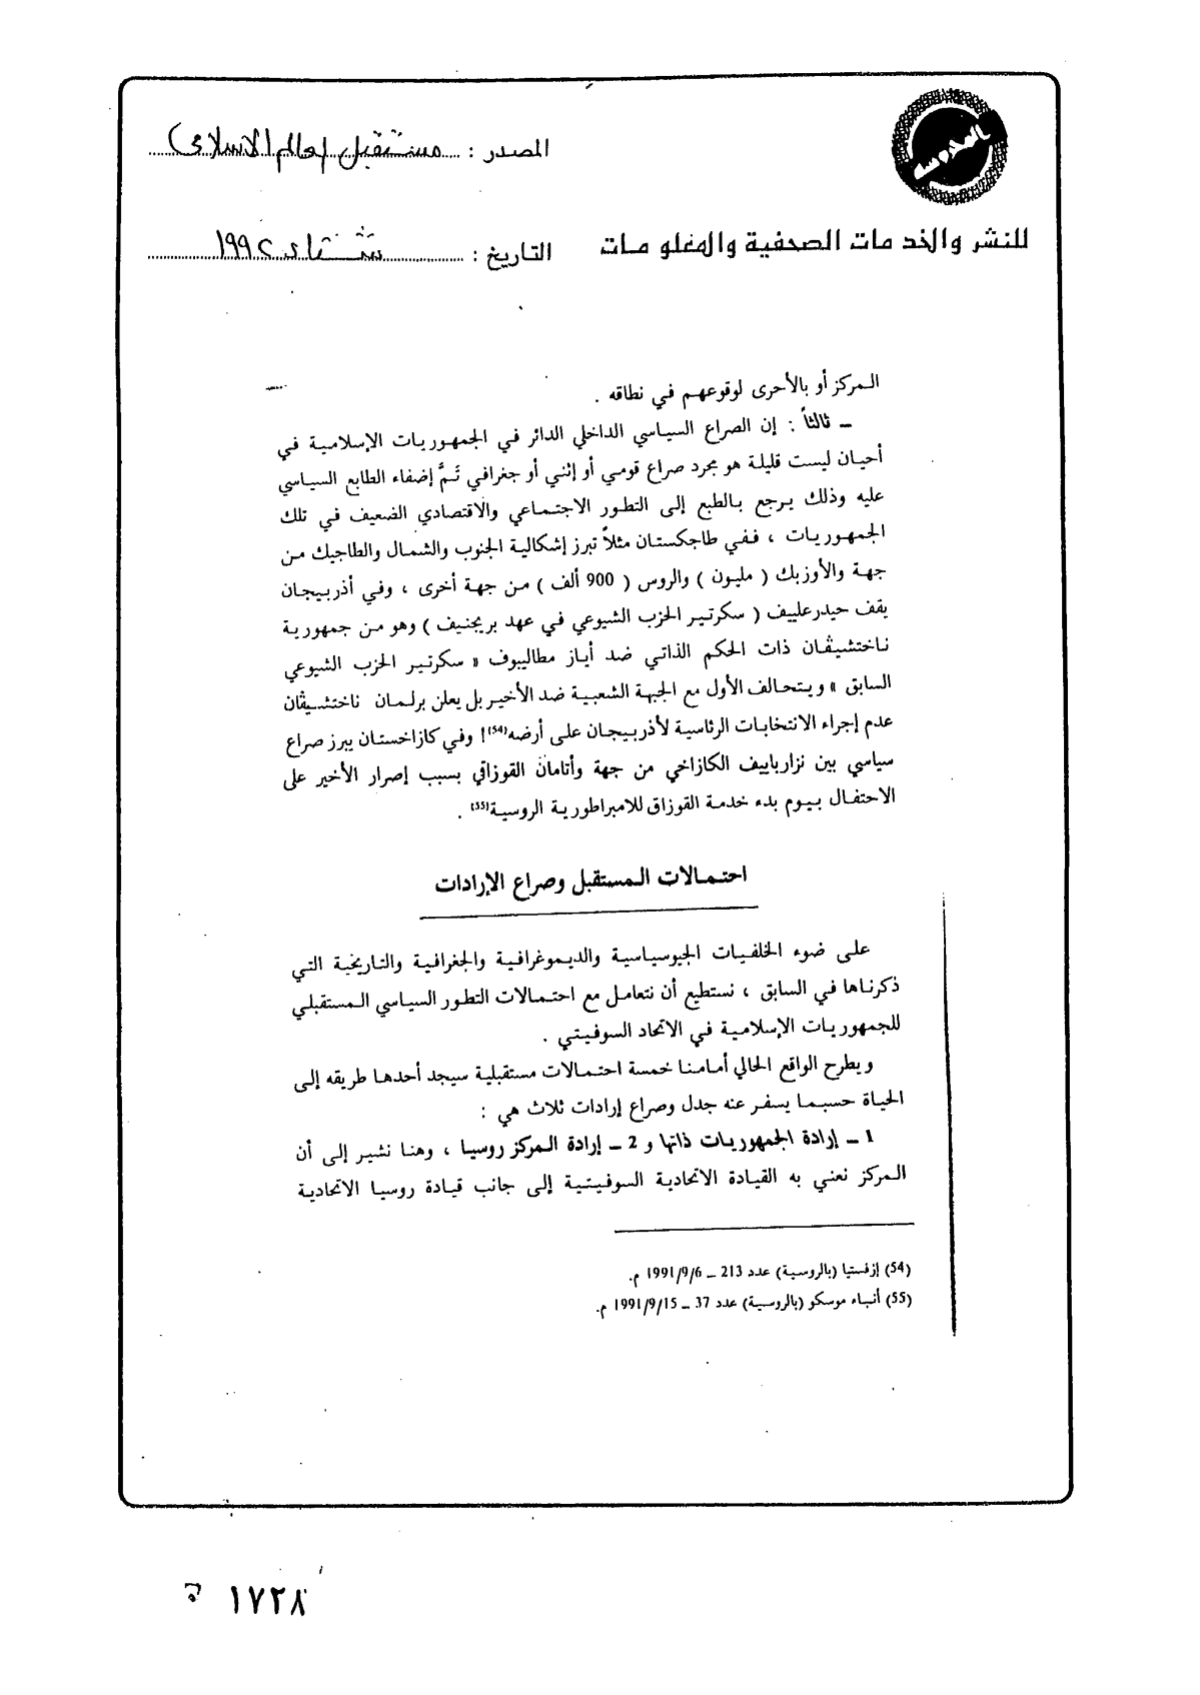 المصدر : مستقبل العالم الاسلامي
للنشر والخدمات الصحفية والمعلومات
التاريخ : شتاء ١٩٩٢
المركز أو بالأحرى لوقوعهم في نطاقه .
ــ ثالثاً : إن الصراع السياسي الداخلي الدائر في الجمهوريات الإسلامية في
أحيان ليست قليلة هو مجرد صراع قومي أو إثني أو جغرافي تَمَّ إضفاء الطابع السياسي
عليه وذلك يرجع بالطبع إلى التطور الاجتماعي والاقتصادي الضعيف في تلك
الجمهوريات ، ففي طاجكستان مثلاً تبرز إشكالية الجنوب والشمال والطاجيك من
جهة والأوزبك ( مليون ) والروس ( 900 ألف ) من جهة أخرى ، وفي أذربيجان
يقف حيدرعلييف ( سكرتير الحزب الشيوعي في عهد بريجنيف ) وهو من جمهورية
ناختشيڤان ذات الحكم الذاتي ضد أياز مطاليبوف « سكرتير الحزب الشيوعي
السابق » ويتحالف الأول مع الجبهة الشعبية ضد الأخير بل يعلن برلمان ناختشيڤان
عدم إجراء الانتخابات الرئاسية لأذربيجان على أرضه(54)! وفي كازاخستان يبرز صراع
سياسي بين نزارباييف الكازاخي من جهة وأتامان القوزاقي بسبب إصرار الأخير على
الاحتفال بيوم بدء خدمة القوزاق للامبراطورية الروسية(55) .
احتمالات المستقبل وصراع الإرادات
على ضوء الخلفيات الجيوسياسية والديموغرافية والجغرافية والتاريخية التي
ذكرناها في السابق ، نستطيع أن نتعامل مع احتمالات التطور السياسي المستقبلي
للجمهوريات الإسلامية في الاتحاد السوفيتي .
ويطرح الواقع الحالي أمامنا خمسة احتمالات مستقبلية سيجد أحدها طريقه إلى
الحياة حسبما يسفر عنه جدل وصراع إرادات ثلاث هي :
1 ــ إرادة الجمهوريات ذاتها و 2 ــ إرادة المركز روسيا ، وهنا نشير إلى أن
المركز نعني به القيادة الاتحادية السوفيتية إلى جانب قيادة روسيا الاتحادية
(54) إزفستيا (بالروسية) عدد 213 ــ 1991/9/6 م.
(55) أنباء موسكو (بالروسية) عدد 37 ــ 1991/9/15 م.
١٧٢٨